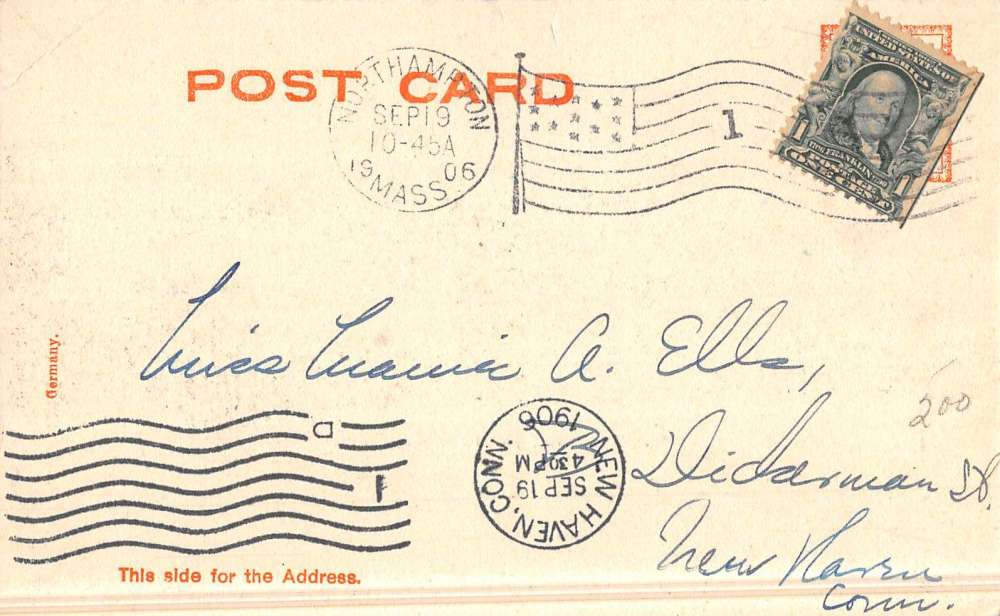 POST CARD
NORTHAMPTON
SEP 19
10-45A
1906
MASS.
1
UNITED STATES OF
AMERICA
1 FRANKLIN 1
POSTAGE
ONE CENT
Germany.
Miss Mamie A. Ells,
200
Dickerman St.
New Haven
Conn.
NEW HAVEN, CONN.
SEP 19
4 30 PM
1906
a
1
This side for the Address.